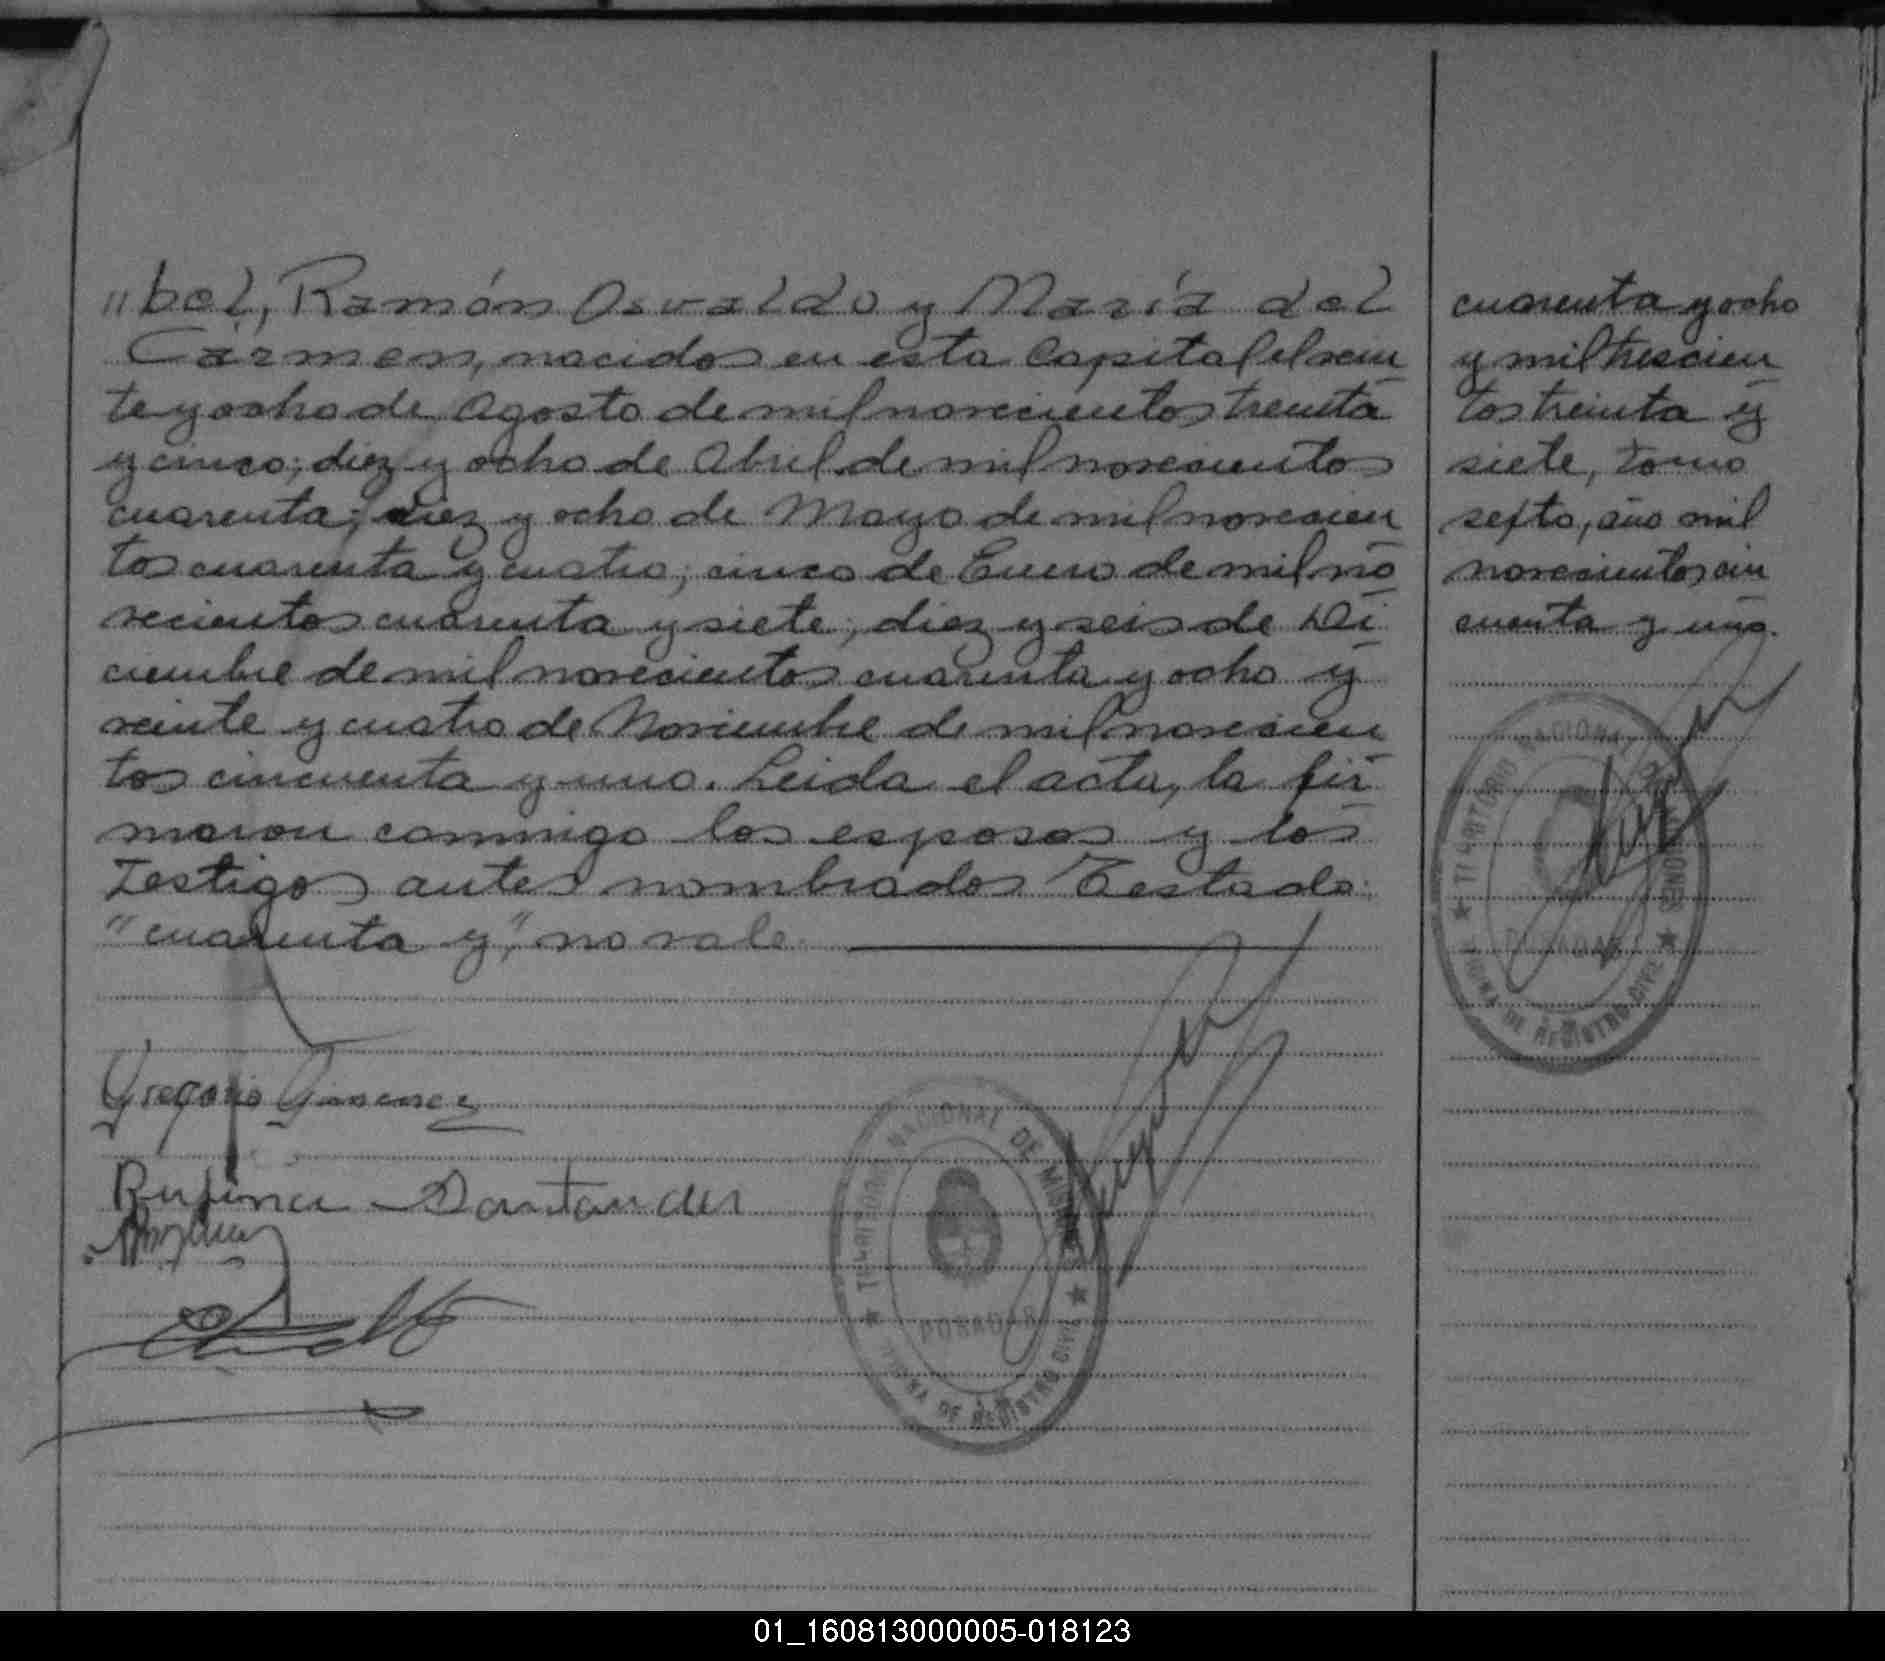 "bel, Ramón Osvaldo y María del
Carmen, nacidos en esta Capital el vein
te y ocho de Agosto de mil novecientos treinta
y cinco; diez y ocho de Abril de mil novecientos
cuarenta; diez y ocho de Mayo de mil novecien
tos cuarenta y cuatro; cinco de Enero de mil no
vecientos cuarenta y siete; diez y seis de Di
ciembre de mil novecientos cuarenta y ocho y
veinte y cuatro de Noviembre de mil novecien
tos cincuenta y uno. Leida el acta, la fir
maron conmigo los esposos y los
Testigos antes nombrados Testado:
"cuarenta y", no vale.
Gregorio Gimenez
Rufina Santander
TERRITORIO NACIONAL DE MISIONES
POSADAS
OFICINA DE REGISTRO CIVIL
cuarenta y ocho
y mil trescien
tos treinta y
siete, tomo
sexto, año mil
novecientos cin
cuenta y uno.
TERRITORIO NACIONAL DE MISIONES
POSADAS
OFICINA DE REGISTRO CIVIL
01_160813000005-018123